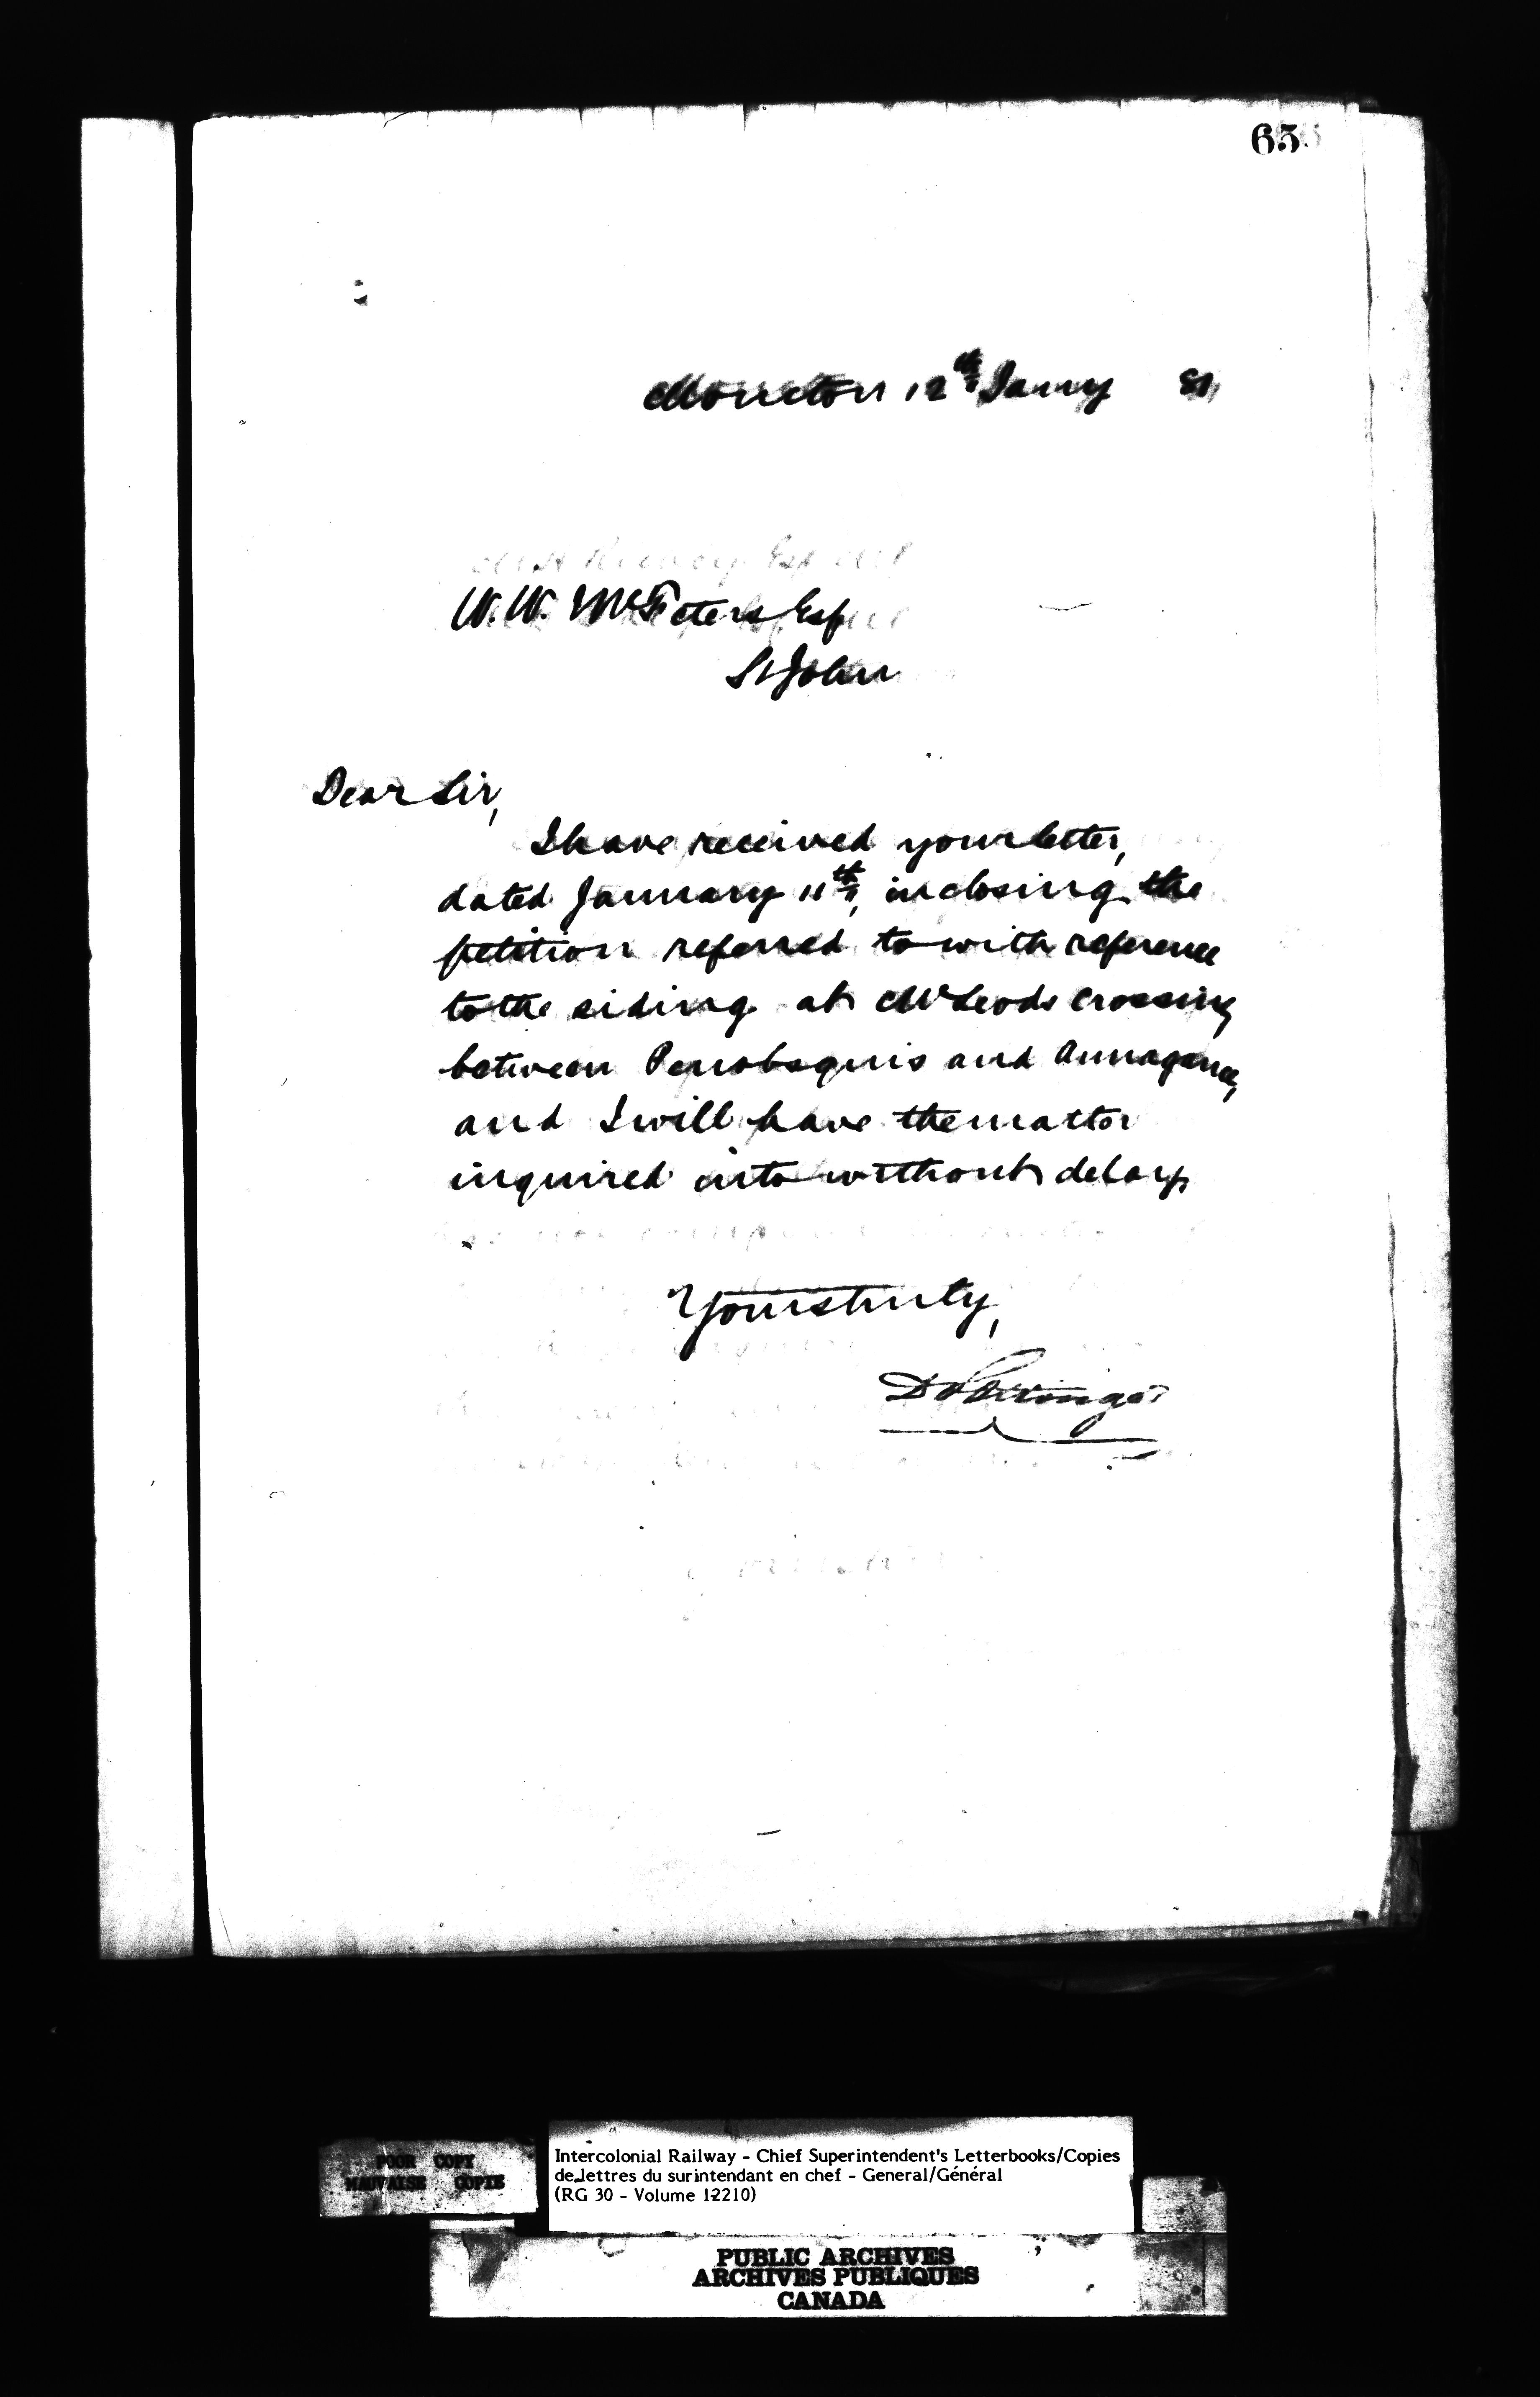 65
Moncton 12th Janny 81
W. W. McFeters Esq
St John
Dear Sir,
I have received your letter,
dated January 11th, inclosing the
petition referred to with reference
to the siding at McLeods Crossing
between Penobsquis and Annagance,
and I will have the matter
inquired into without delay
Yours truly,
D Pottinger
POOR COPY
MAUVAISE COPIE
Intercolonial Railway - Chief Superintendent's Letterbooks/Copies
de lettres du surintendant en chef - General/Général
(RG 30 - Volume 12210)
PUBLIC ARCHIVES
ARCHIVES PUBLIQUES
CANADA